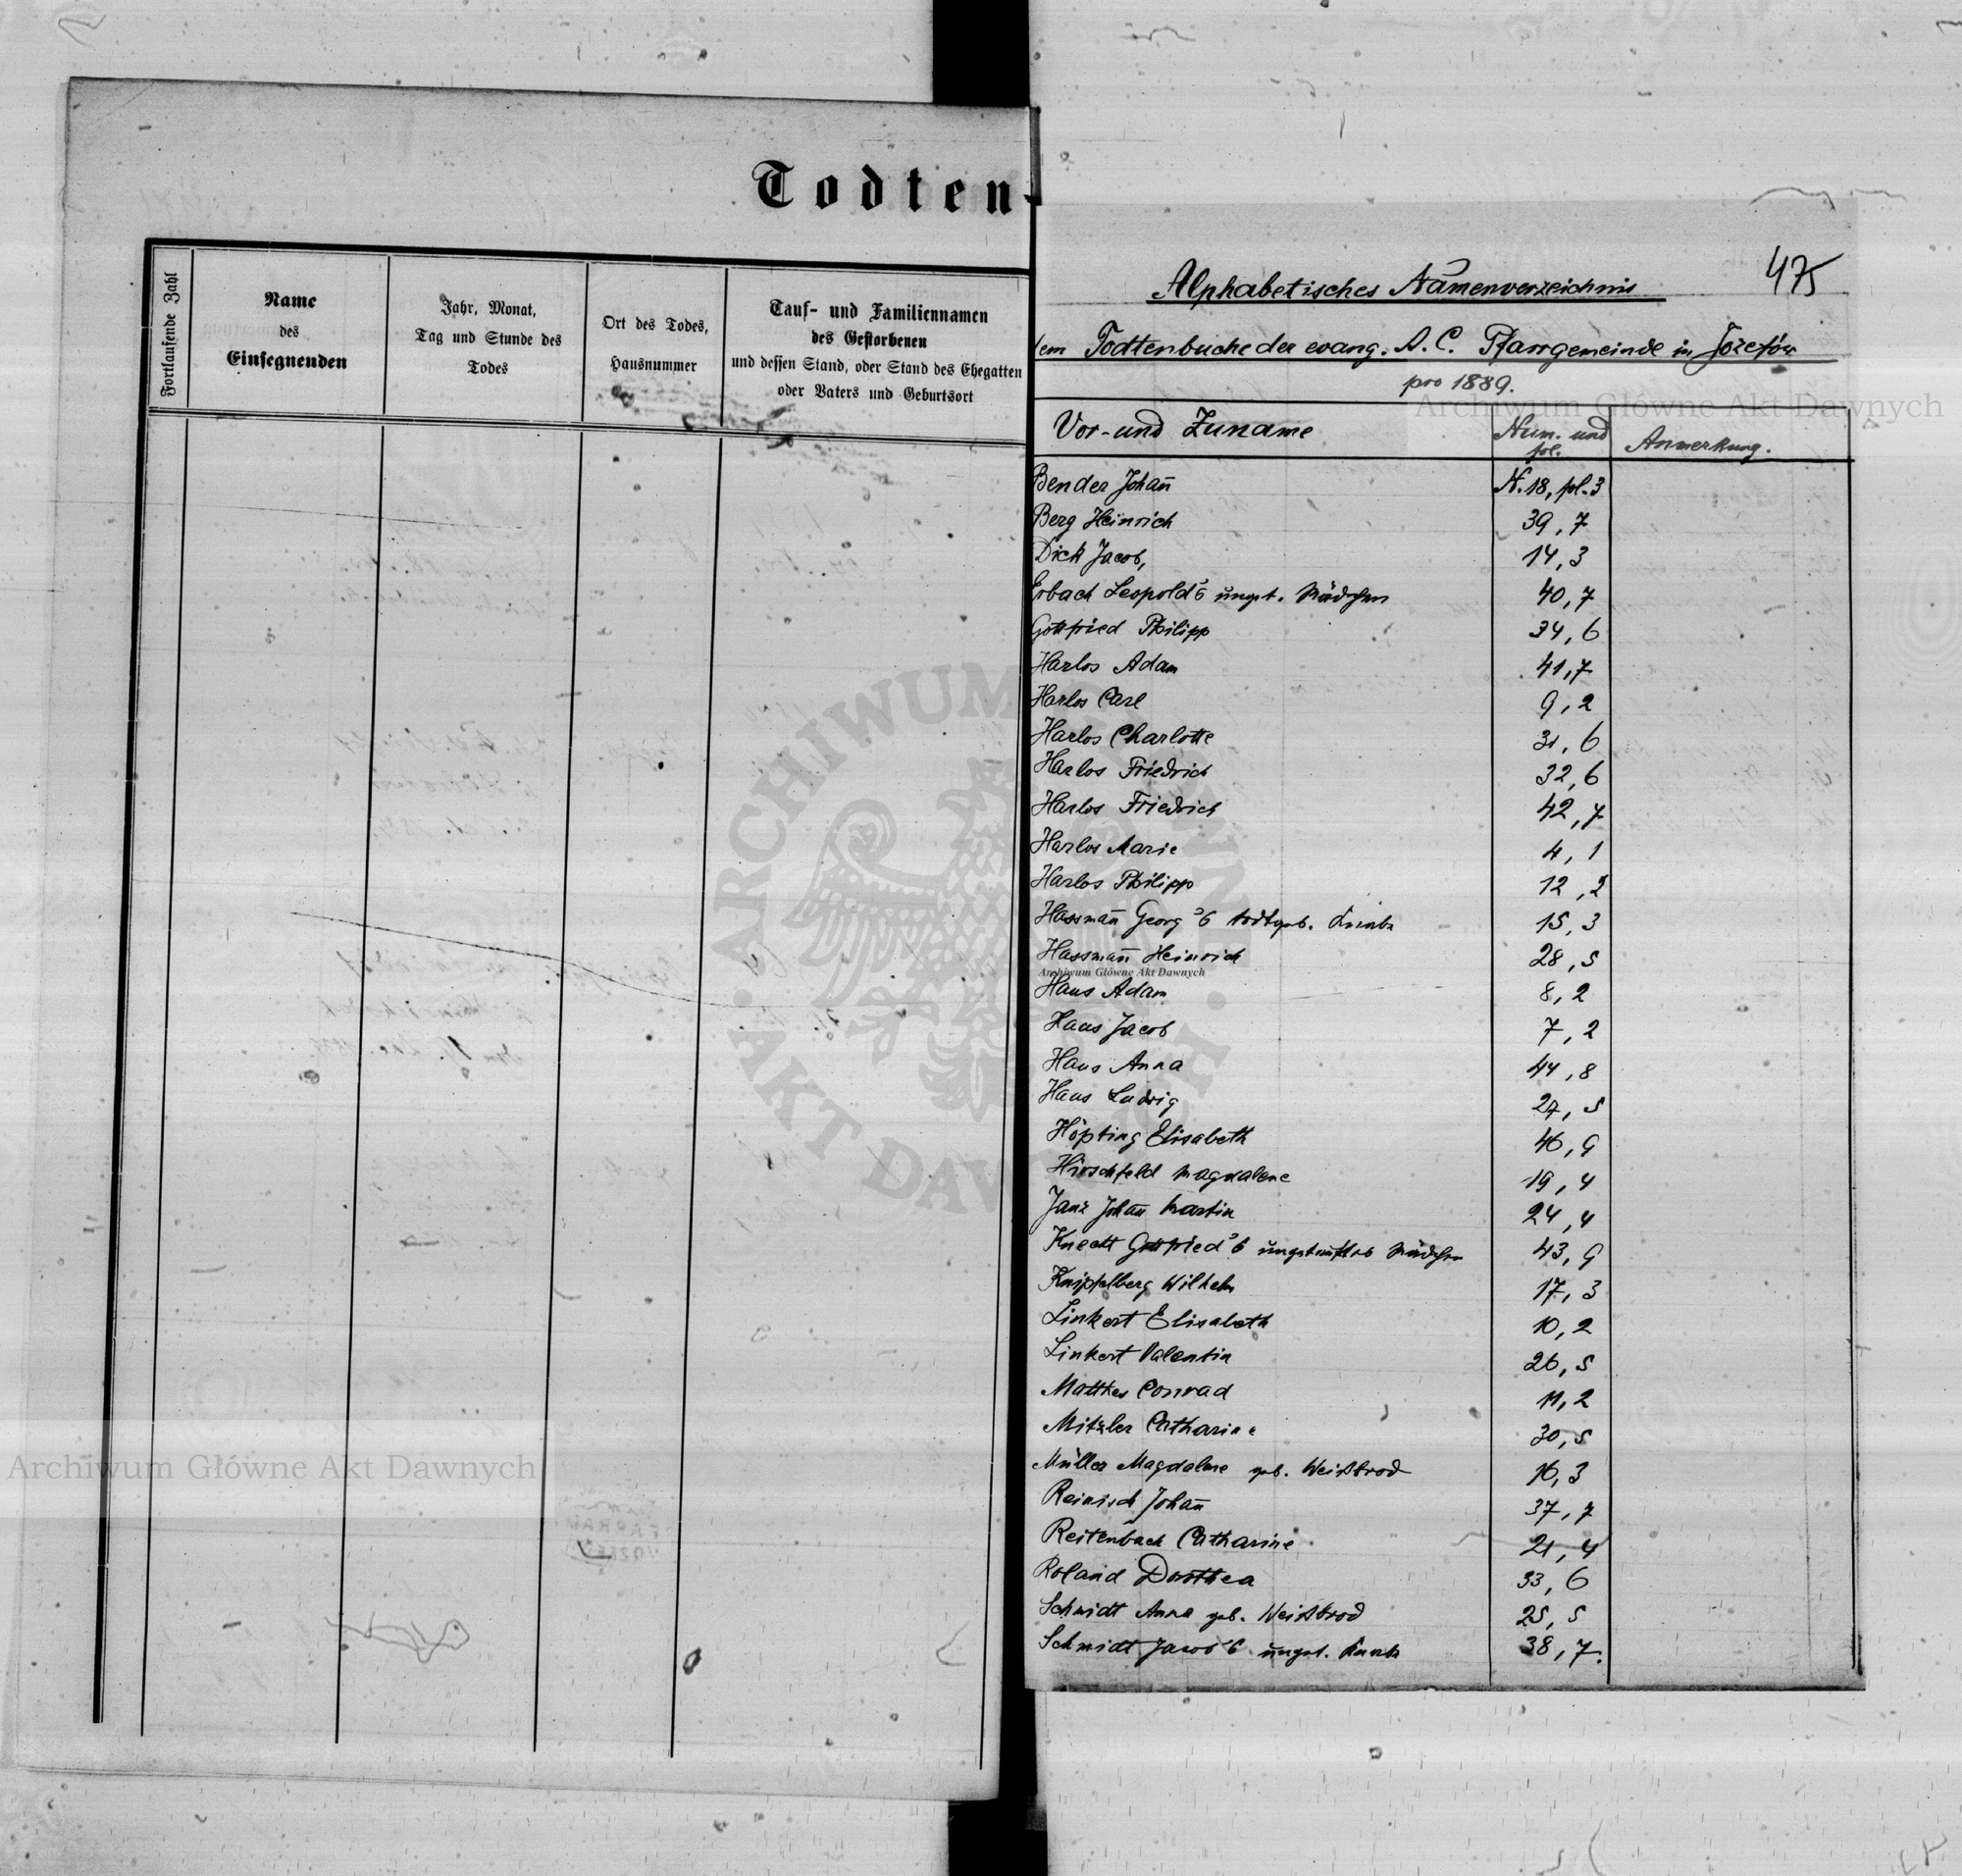 Todten-
Fortlaufende Zahl
Name
des
Einsegnenden
Jahr, Monat,
Tag und Stunde des
Todes
Ort des Todes,
Hausnummer
Tauf- und Familiennamen
des Gestorbenen
und dessen Stand, oder Stand des Ehegatten
oder Vaters und Geburtsort
475
Alphabetisches Namenverzeichnis
dem Todtenbuche der evang. A. C. Pfarrgemeinde in Józefów
pro 1889.
Vor- und Zuname Num. und fol. Anmerkung.
Bender Johan̄ N. 18, fol. 3
Berg Heinrich 39, 7
Dick Jacob, 14, 3
Erbach Leopold's ungt. Mädchen 40, 7
Gottfried Philipp 34, 6
Harlos Adam 41, 7
Harlos Carl 9, 2
Harlos Charlotte 31, 6
Harlos Friedrich 32, 6
Harlos Friedrich 42, 7
Harlos Marie 4, 1
Harlos Philipp 12, 2
Hassman̄ Georg's todtgeb. Knabe 15, 3
Hassman̄ Heinrich 28, 5
Haus Adam 8, 2
Haus Jacob 7, 2
Haus Anna 44, 8
Haus Ludwig 27, 5
Höpting Elisabeth 46, 9
Hirschfeld Magdalene 19, 4
Janz Johan̄ Martin 24, 4
Knecht Gottfried's ungetauftes Mädchen 43, 9
Knipfelberg Wilhelm 17, 3
Linkert Elisabeth 10, 2
Linkert Valentin 26, 5
Matthes Conrad 11, 2
Mitzler Catharine 30, 5
Müller Magdalene geb. Weißbrod 16, 3
Reinisch Johan̄ 37, 7
Reitenbach Catharine 21, 4
Roland Dorothea 33, 6
Schmidt Anna geb. Weißbrod 25, 5
Schmidt Jacob's ungt. Knabe 38, 7.
Archiwum Główne Akt Dawnych
Archiwum Główne Akt Dawnych
Archiwum Główne Akt Dawnych